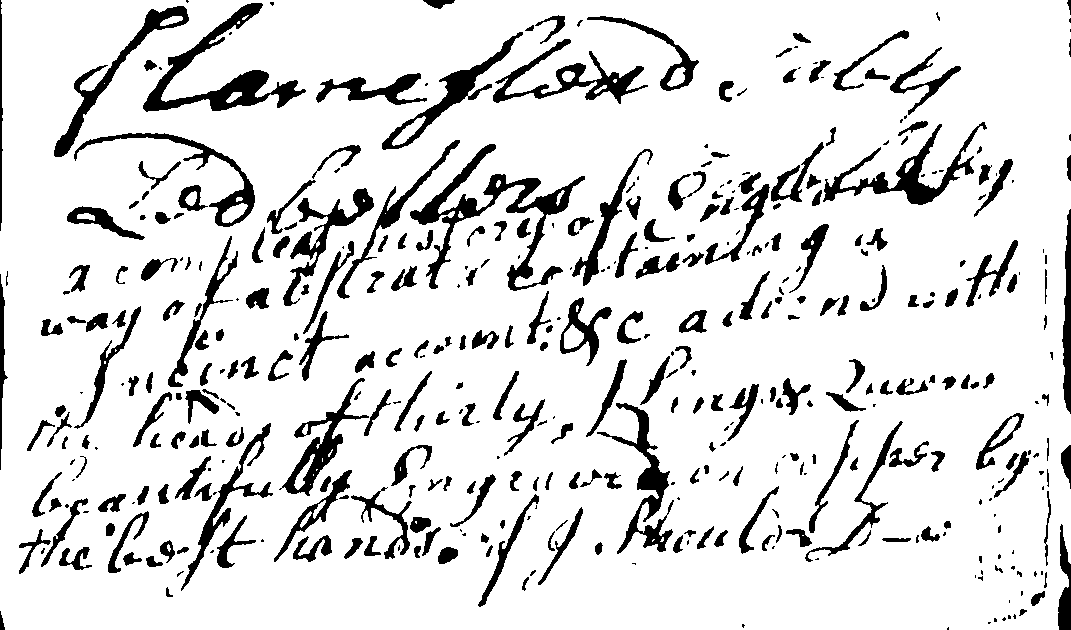 Flamesland July
a compleat history of England by
way of abstrat containing a
Sucinct account &c adornd with
the heads of thirty Kings & Queens
beautifully Engraved on copper by
the best hands. if I should D